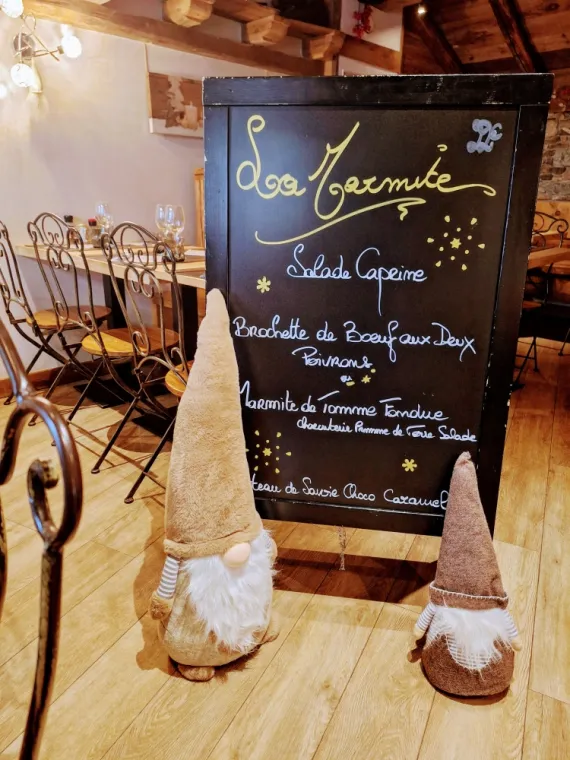 La Marmite
Salade Capeine
Brochette de Bœuf aux Deux
Poivrons
ou
Marmite de Tomme Fondue
charcuterie Pomme de Terre Salade
teau de Savoie Choco Caramel